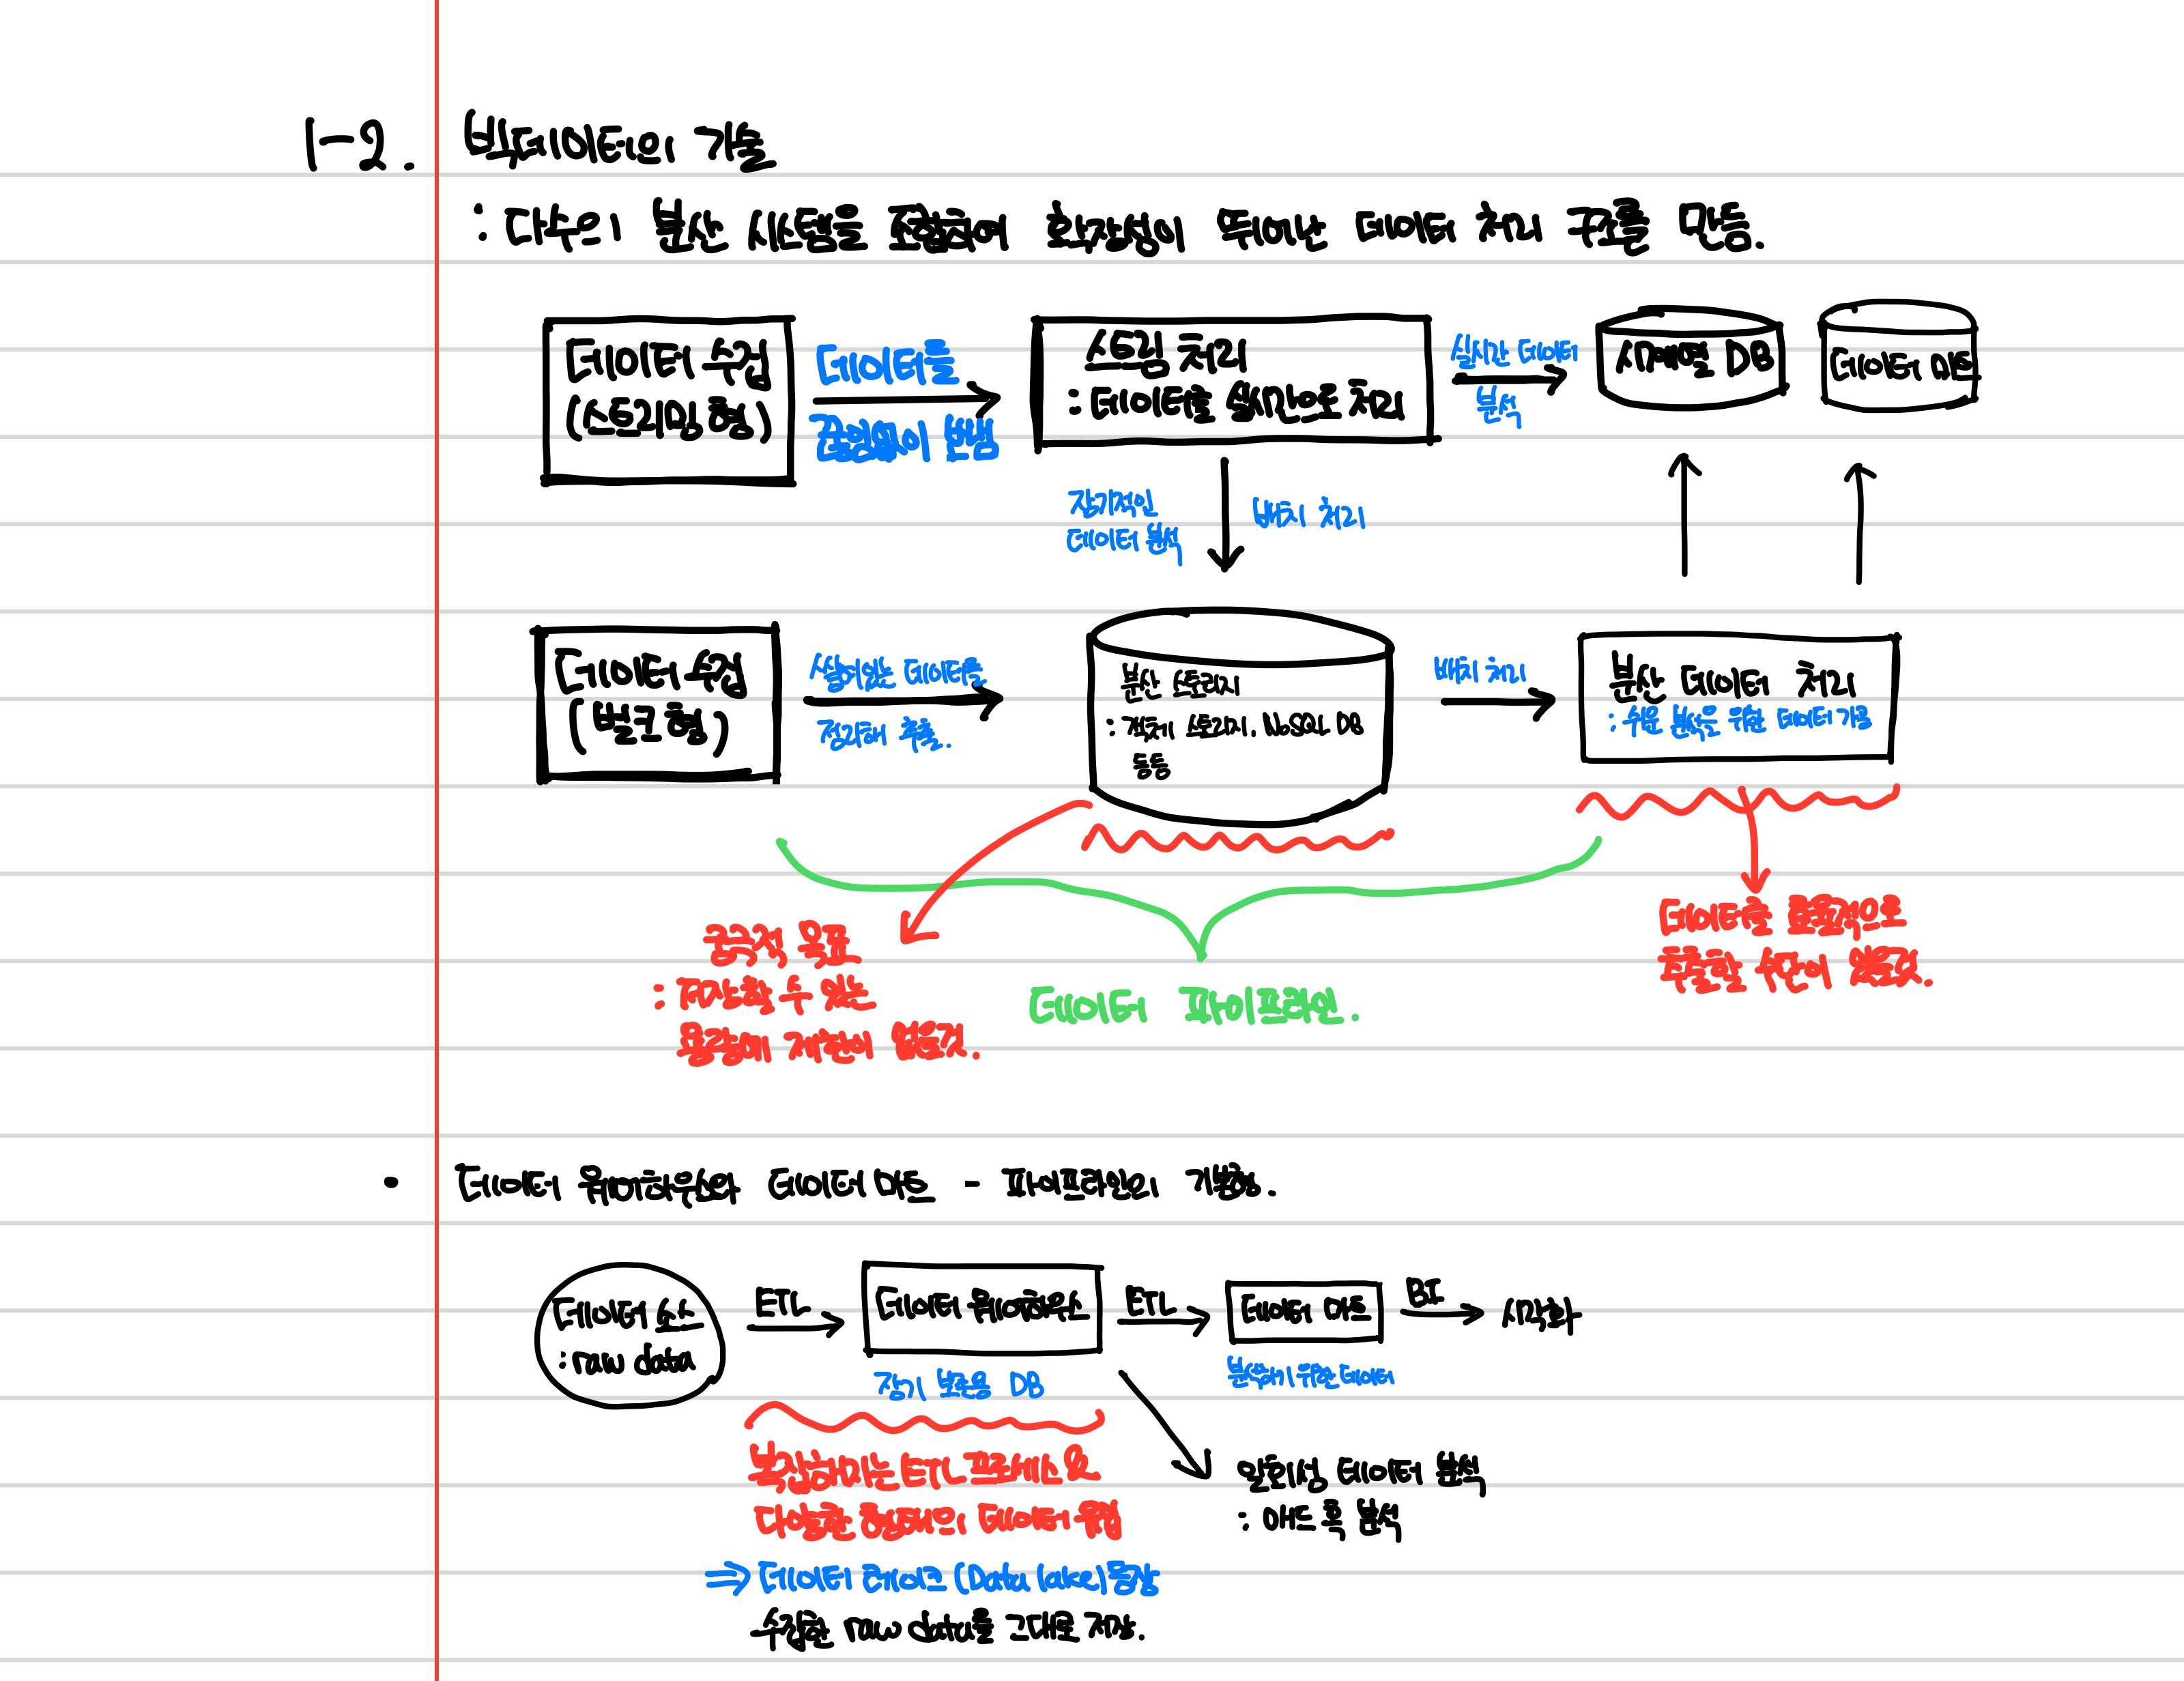 1-2. 빅데이터의 기술
: 다수의 분산 시스템을 조합하여 확장성이 뛰어난 데이터 처리 구조를 만듦.
데이터 수집
(스트리밍 형)
데이터를
끊임없이 보냄
스트림 처리
: 데이터를 실시간으로 처리
실시간 데이터
분석
시계열 DB
데이터 마트
장기적인
데이터 분석
배치 처리
데이터 수집
(벌크 형)
쌓여있는 데이터를
정리해 추출.
분산 스토리지
: 객체 스토리지, NoSQL DB
등등
배치 처리
분산 데이터 처리
: 쉬운 분석을 위한 데이터 가공
궁극적 목표
: 저장할 수 있는
용량의 제한이 없을것.
데이터 파이프라인.
데이터를 효율적으로
추출할 수단이 있을것.
• 데이터 웨어하우스와 데이터 마트 - 파이프라인의 기본형.
데이터 소스
: raw data
ETL
데이터 웨어하우스
장기 보존용 DB
ETL
데이터 마트
분석하기 위한 데이터
BI
시각화
복잡해지는 ETL 프로세스 &
다양한 형태의 데이터 유형
일회성 데이터 분석
: 애드 혹 분석
⇒ 데이터 레이크 (Data lake) 등장
수집한 raw data를 그대로 저장.